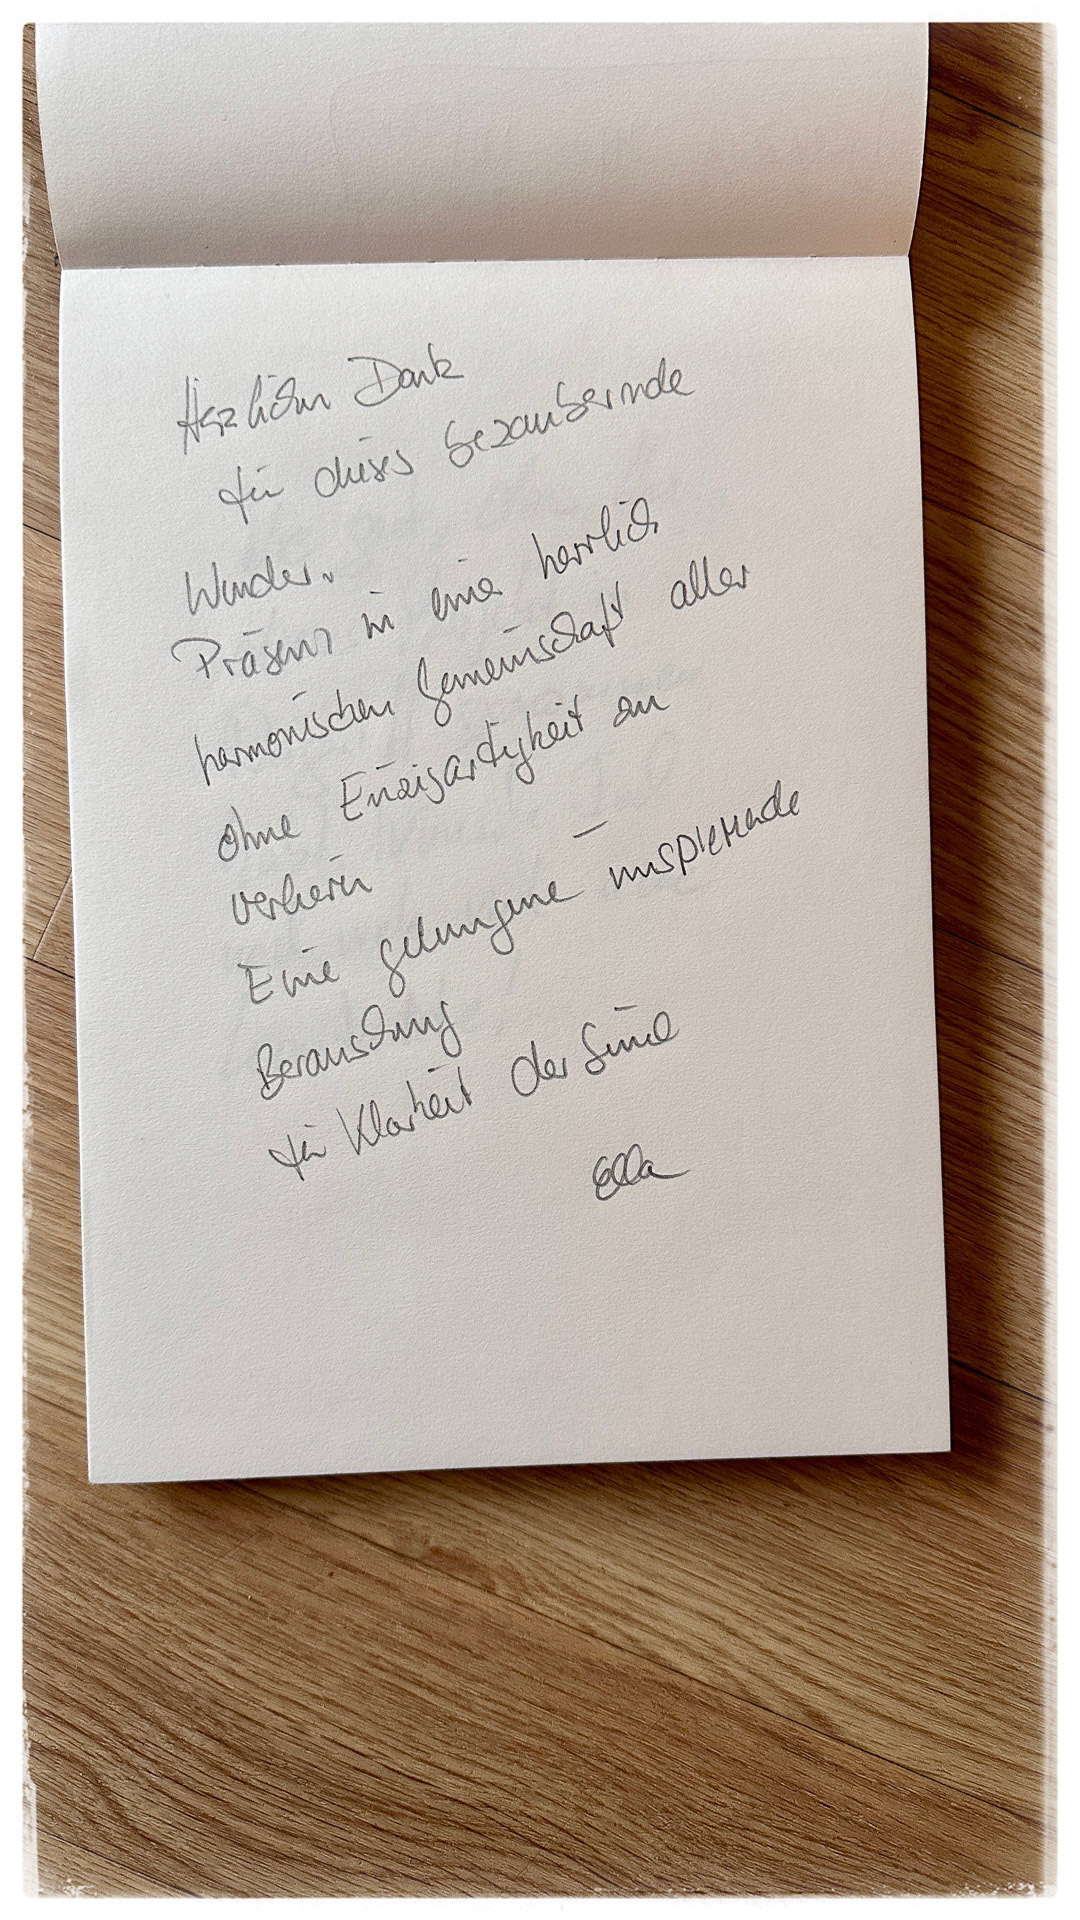 Herzlichen Dank
für dieses bezaubernde
Wunder.
Präsenz in einer herrlich
harmonischen Gemeinschaft aller
ohne Einzigartigkeit zu
verlieren –
Eine gelungene inspirierende
Berauschung
für Klarheit der Sinne
Ella